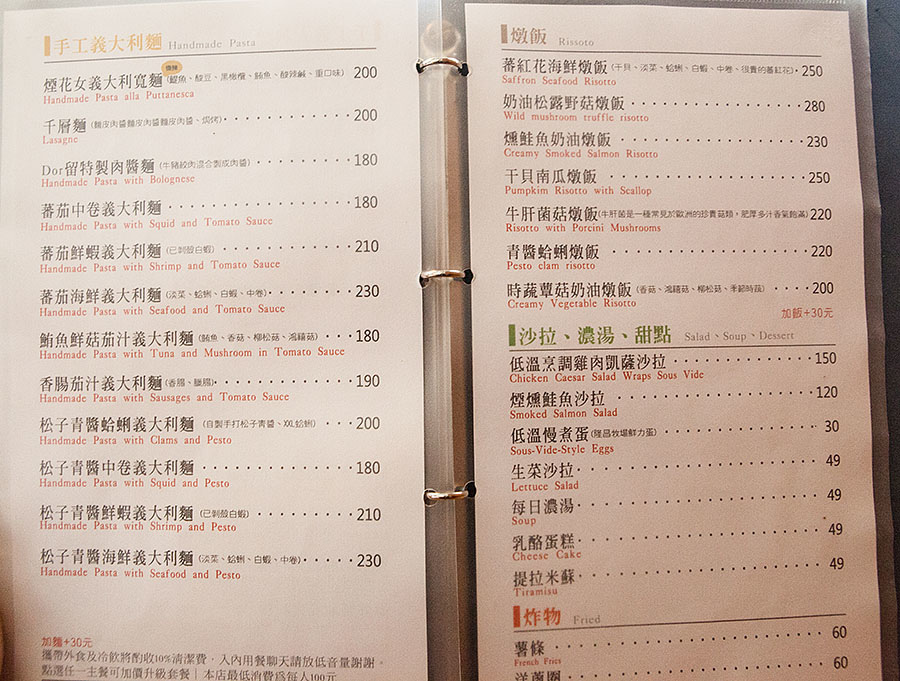 手工義大利麵 Handmade Pasta
煙花女義大利寬麵(鯷魚、酸豆、黑橄欖、鮪魚、酸辣鹹、重口味) 200
Handmade Pasta alla Puttanesca
千層麵(麵皮肉醬麵皮肉醬麵皮肉醬、焗烤) 200
Lasagne
Dor留特製肉醬麵(牛豬絞肉混合製成肉醬) 180
Handmade Pasta with Bolognese
蕃茄中卷義大利麵 180
Handmade Pasta with Squid and Tomato Sauce
蕃茄鮮蝦義大利麵(已剝殼白蝦) 210
Handmade Pasta with Shrimp and Tomato Sauce
蕃茄海鮮義大利麵(淡菜、蛤蜊、白蝦、中卷) 230
Handmade Pasta with Seafood and Tomato Sauce
鮪魚鮮菇茄汁義大利麵(鮪魚、香菇、柳松菇、鴻禧菇) 180
Handmade Pasta with Tuna and Mushroom in Tomato Sauce
香腸茄汁義大利麵(香腸、臘腸) 190
Handmade Pasta with Sausages and Tomato Sauce
松子青醬蛤蜊義大利麵(自製手打松子青醬、XXL蛤蜊) 200
Handmade Pasta with Clams and Pesto
松子青醬中卷義大利麵 180
Handmade Pasta with Squid and Pesto
松子青醬鮮蝦義大利麵(已剝殼白蝦) 210
Handmade Pasta with Shrimp and Pesto
松子青醬海鮮義大利麵(淡菜、蛤蜊、白蝦、中卷) 230
Handmade Pasta with Seafood and Pesto
加麵+30元
攜帶外食及冷飲將酌收10%清潔費，入內用餐聊天請放低音量謝謝。
點選任一主餐可加價升級套餐 | 本店最低消費爲每人100元
燉飯 Rissoto
蕃紅花海鮮燉飯(干貝、淡菜、蛤蜊、白蝦、中卷、很貴的蕃紅花) 250
Saffron Seafood Risotto
奶油松露野菇燉飯 280
Wild mushroom truffle risotto
燻鮭魚奶油燉飯 230
Creamy Smoked Salmon Risotto
干貝南瓜燉飯 250
Pumpkim Risotto with Scallop
牛肝菌菇燉飯(牛肝菌是一種常見於歐洲的珍貴菇類，肥厚多汁香氣飽滿) 220
Risotto with Porcini Mushrooms
青醬蛤蜊燉飯 220
Pesto clam risotto
時蔬蕈菇奶油燉飯(香菇、鴻禧菇、柳松菇、季節時蔬) 200
Creamy Vegetable Risotto
加飯+30元
沙拉、濃湯、甜點 Salad、Soup、Dessert
低溫烹調雞肉凱薩沙拉 150
Chicken Caesar Salad Wraps Sous Vide
煙燻鮭魚沙拉 120
Smoked Salmon Salad
低溫慢煮蛋(隆昌牧場鮮力蛋) 30
Sous-Vide-Style Eggs
生菜沙拉 49
Lettuce Salad
每日濃湯 49
Soup
乳酪蛋糕 49
Cheese Cake
提拉米蘇 49
Tiramisu
炸物 Fried
薯條 60
French Fries
洋蔥圈 60